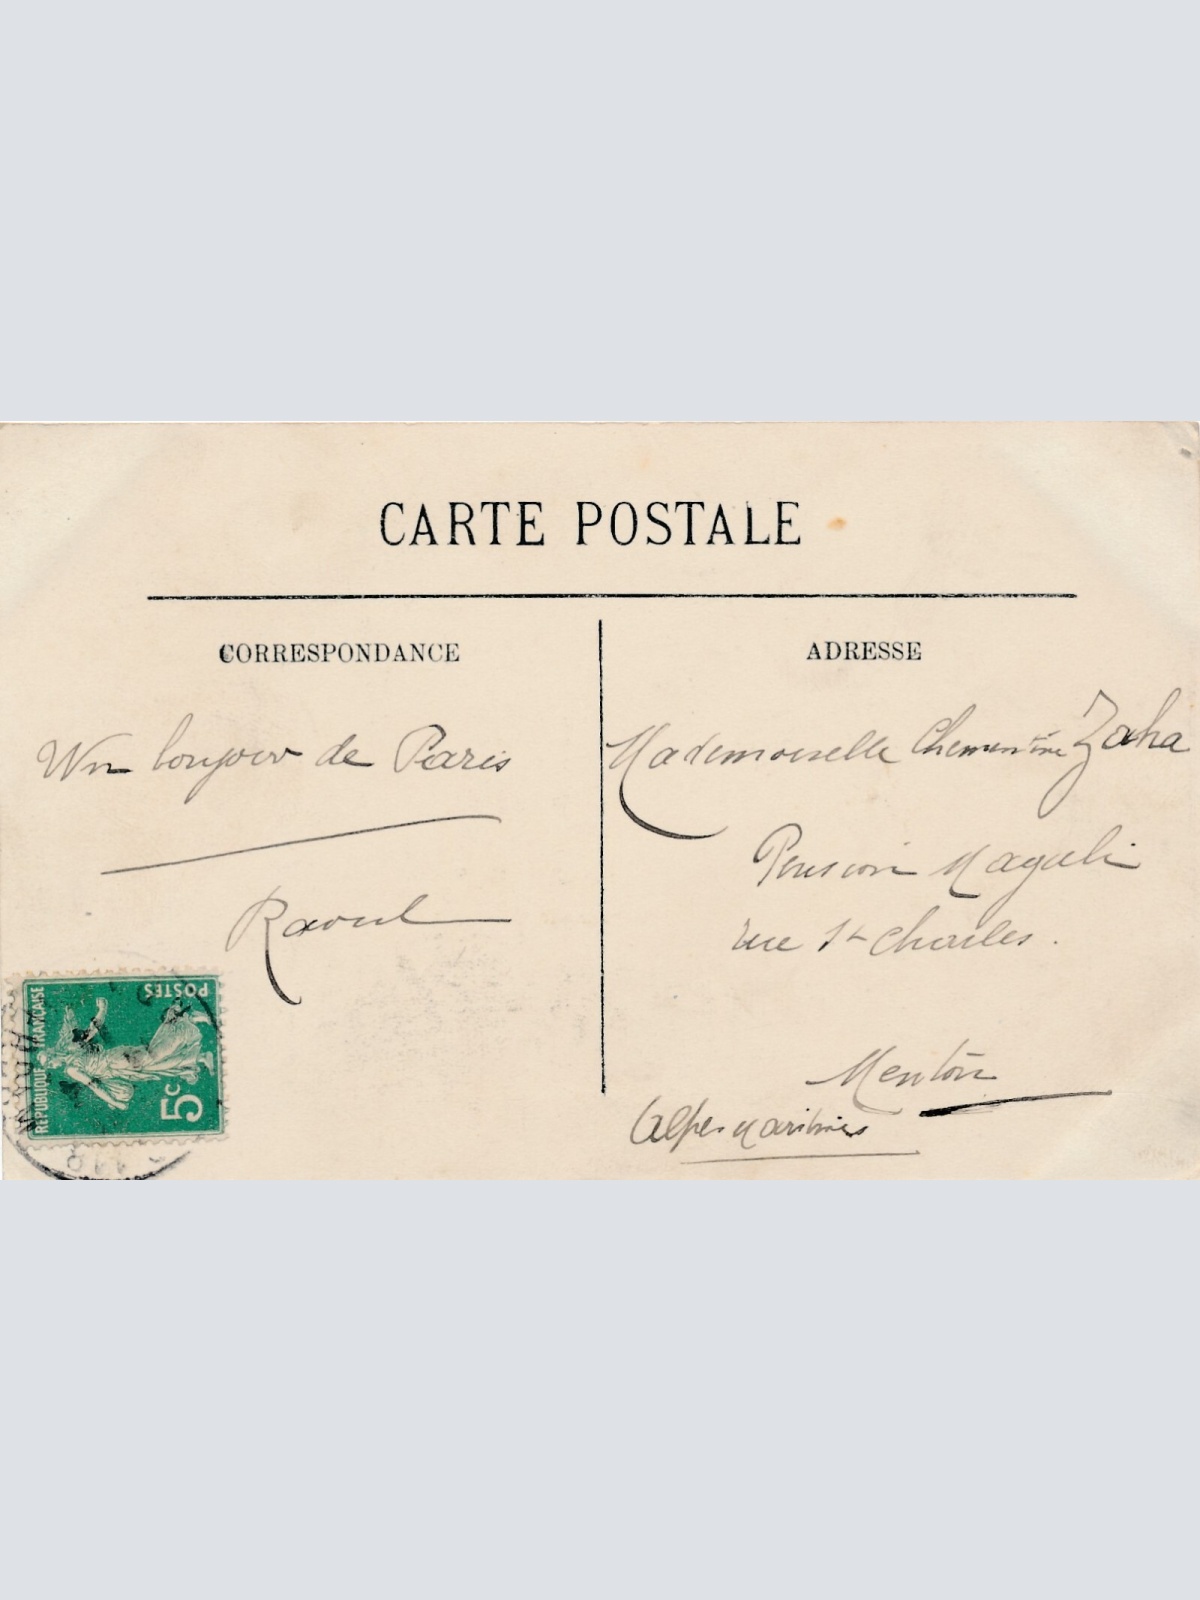 CARTE POSTALE
CORRESPONDANCE
Un bonjour de Paris
Raoul
ADRESSE
Mademoiselle Chementine Zaha
Pension Magali
rue St Charles.
Menton
Alpes Maritimes
REPUBLIQUE FRANÇAISE
POSTES
5c